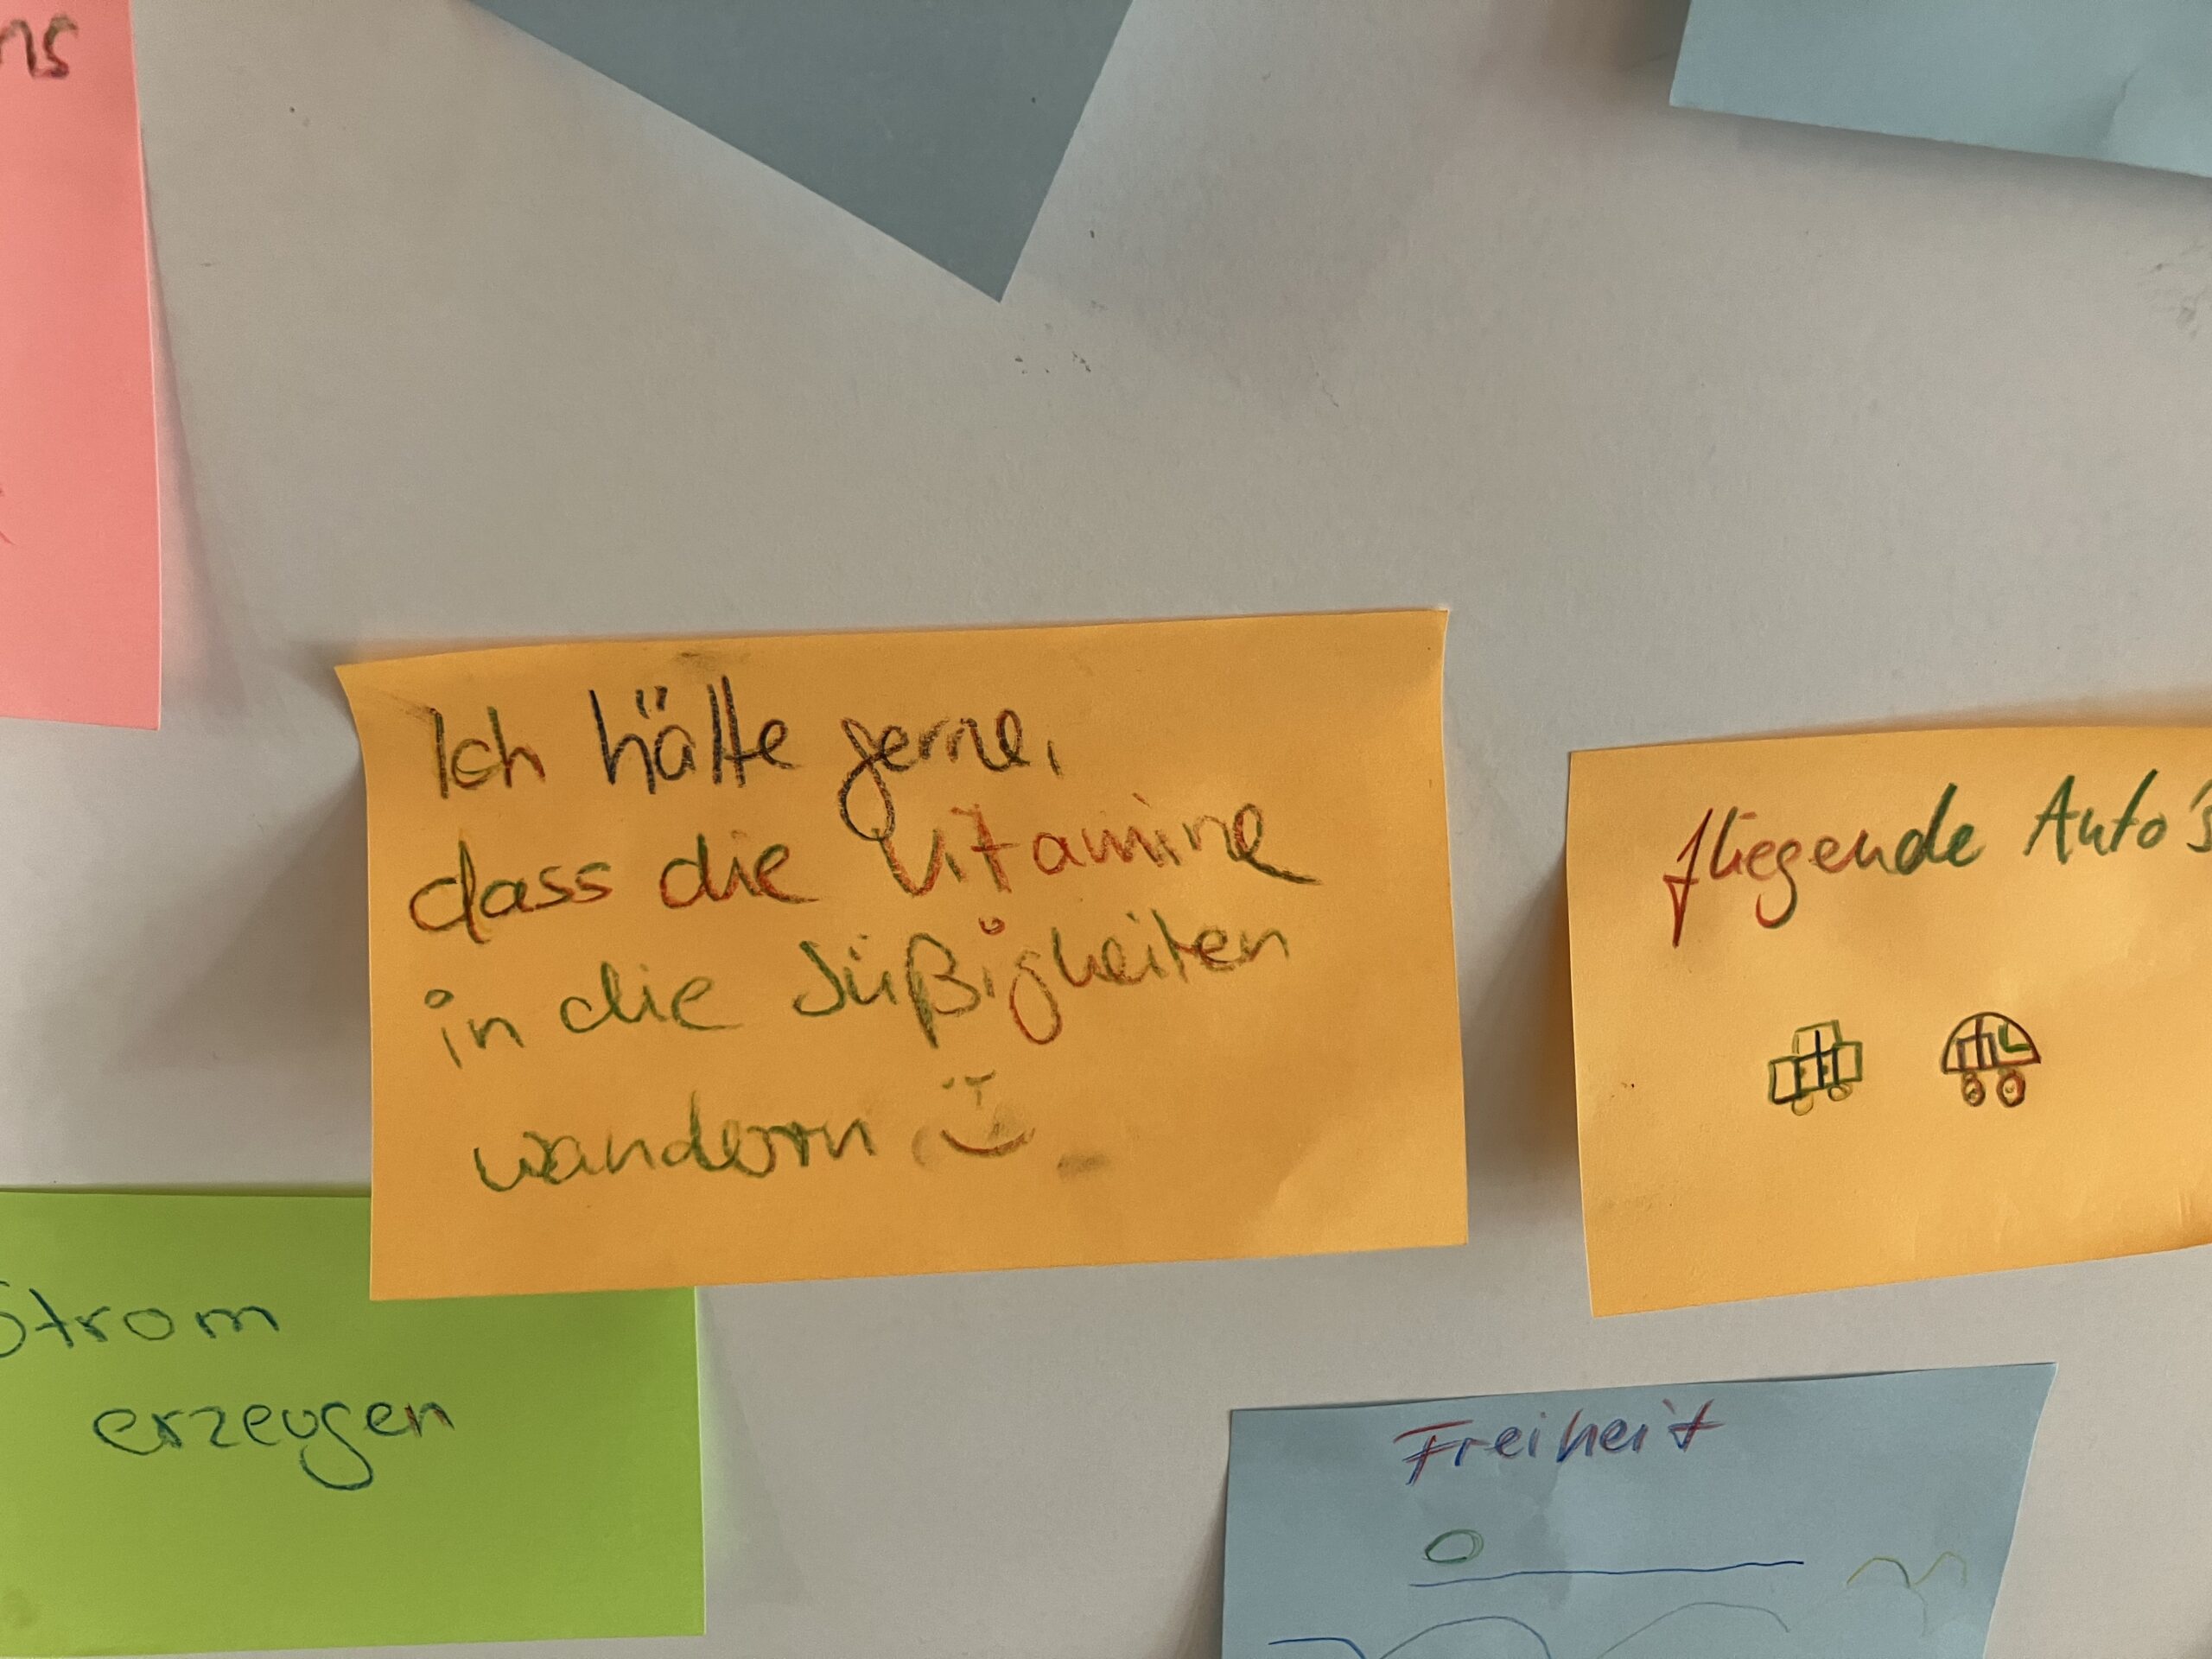 Ich hätte gerne,
dass die Vitamine
in die Süßigkeiten
wandern
fliegende Auto's
Strom
erzeugen
Freiheit